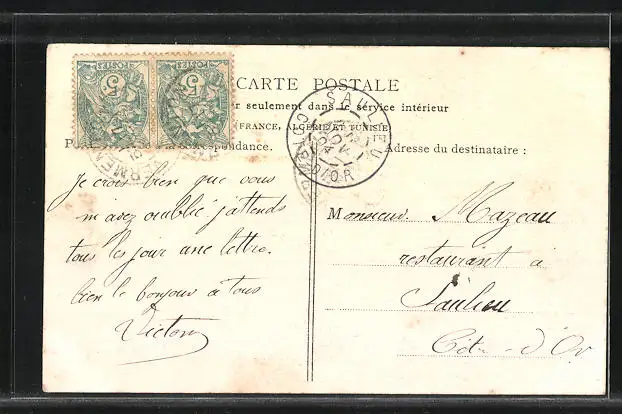 POSTES 5 POSTES 5
CARTE POSTALE
er seulement dans le service intérieur
(FRANCE, ALGÉRIE ET TUNISIE)
la correspondance.
Adresse du destinataire :
SAULIEU
CÔTE-D'OR
Je crois bien que vous
m'avez oublié j'attends
tous les jour une lettre.
bien le bonjour à tous
Victor
Monsieur Mazeau
restaurant à
Saulieu
Côte-d'Or